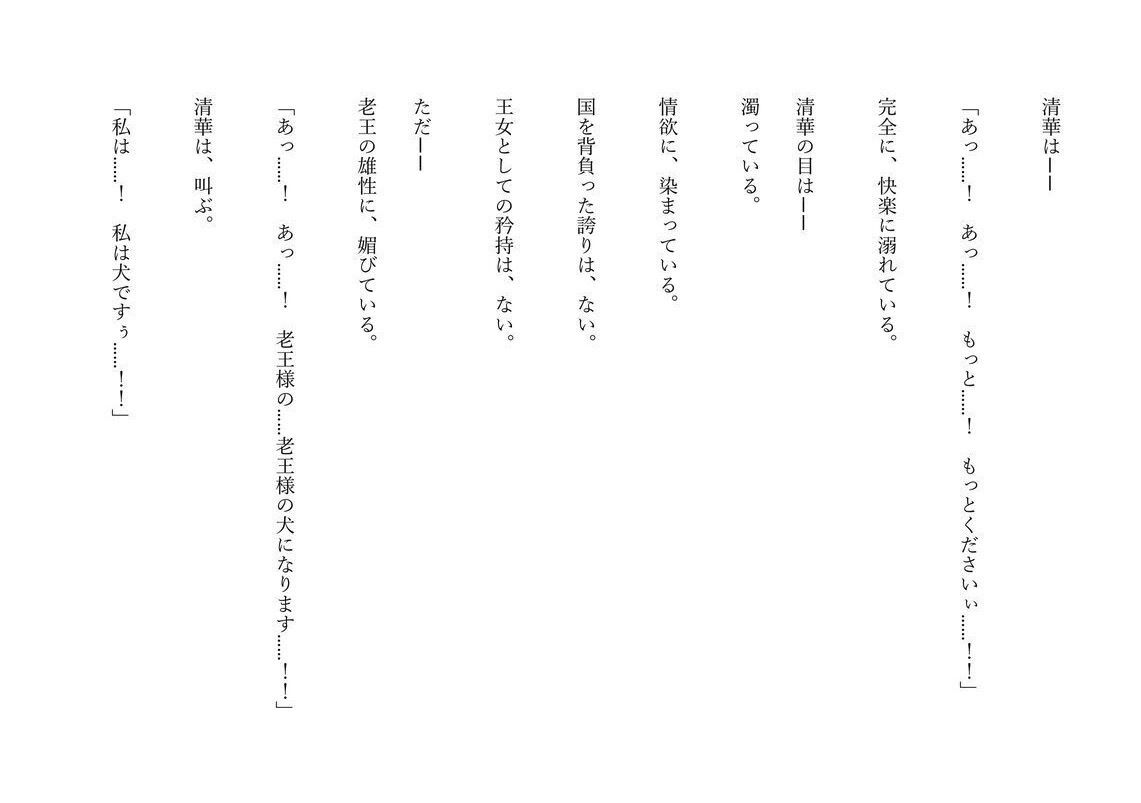 清華は――
「あっ……！　あっ……！　もっと……！　もっとくださいぃ……！！」
完全に、快楽に溺れている。
清華の目は――
濁っている。
情欲に、染まっている。
国を背負った誇りは、ない。
王女としての矜持は、ない。
ただ――
老王の雄性に、媚びている。
「あっ……！　あっ……！　老王様の……老王様の犬になります……！！」
清華は、叫ぶ。
「私は……！　私は犬ですぅ……！！」